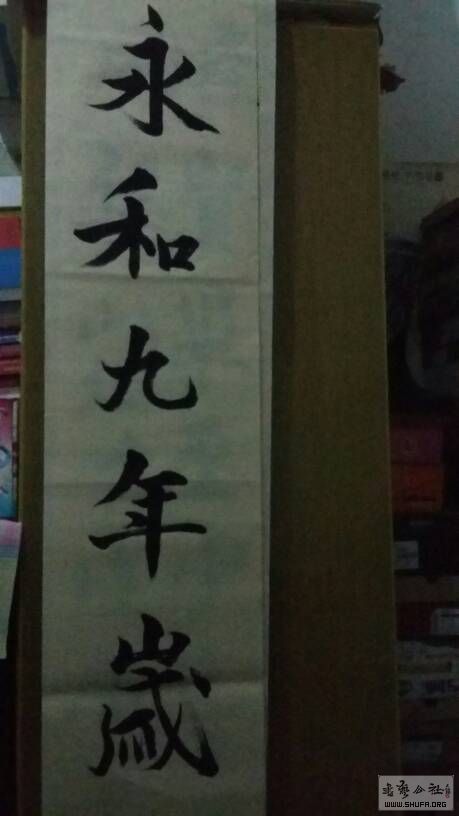 永和九年歲
WWW.SHUFA.ORG